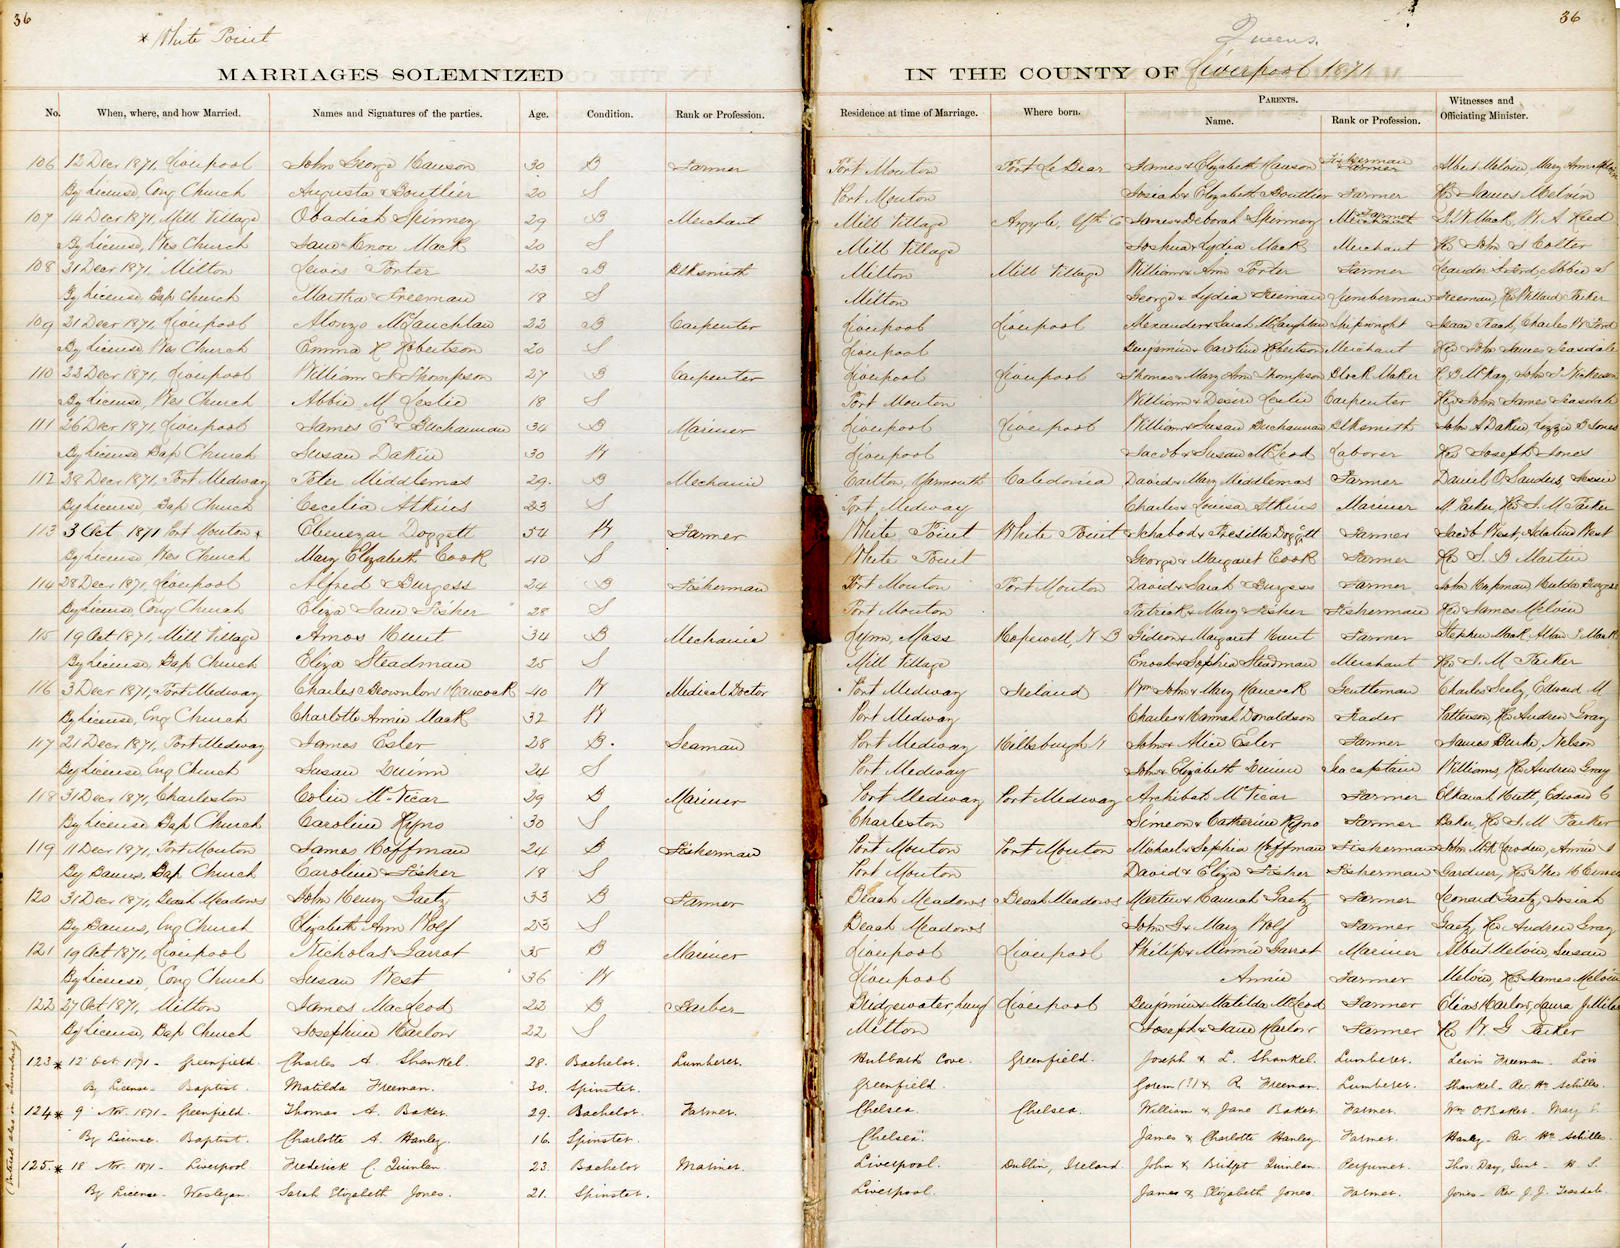 36
* White Point
MARRIAGES SOLEMNIZED
No. When, where, and how Married. Names and Signatures of the parties. Age. Condition. Rank or Profession.
106 12 Decr 1871, Liverpool John George Hanson 30 B Farmer
By License, Cong Church Augusta Boutlier 20 S
107 14 Decr 1871, Mill Village Obadiah Spinney 29 B Merchant
By License, Wes Church Jane Knox Mack 20 S
108 31 Decr 1871, Milton Lewis Porter 23 B Blksmith
By License, Bap Church Martha Freeman 19 S
109 21 Decr 1871, Liverpool Alonzo McLauchlan 22 B Carpenter
By License, Wes Church Emma H Robertson 20 S
110 22 Decr 1871, Liverpool William S Thompson 27 B Carpenter
By License, Wes Church Abbie M Leslie 18 S
111 26 Decr 1871, Liverpool James E Buchannan 34 B Mariner
By License Bap Church Susan Dakin 30 W
112 28 Decr 1871, Port Medway Peter Middlemas 29. B Mechanic
By License, Bap Church Cecelia Atkins 23 S
113 3 Oct 1871 Port Mouton * Ebenezar Doggett 54 W Farmer
By License, Wes Church Mary Elizabeth Cook 40 S
114 28 Decr 1871, Liverpool Alfred Burgess 24 B Fisherman
By License Cong Church Eliza Jane Fisher 28 S
115 19 Oct 1871, Mill Village Amos Hunt 34 B Mechanic
By License, Bap Church Eliza Steadman 25 S
116 3 Decr 1871, Port Medway Charles Brownlow Hancock 40 W Medical Doctor
By License, Eng Church Charlotte Annie Mack 32 W
117 21 Decr 1871, Port Medway James Esler 28 B. Seaman
By License, Eng Church Susan Quinn 24 S
118 31 Decr 1871, Charleston Colin McVicar 29 B Mariner
By License Bap Church Caroline Ryno 30 S
119 11 Decr 1871, Port Mouton James Hoffman 24 B Fisherman
By Banns, Bap Church Caroline Fisher 19 S
120 31 Decr 1871, Beach Meadows John Henry Gaetz 33 B Farmer
By Banns, Eng Church Elizabeth Ann Wolf 23 S
121 19 Oct 1871, Liverpool Nicholas Garrot 35 B Mariner
By License, Cong Church Susan West 36 W
122 27 Oct 1871, Milton James MacLeod 22 B Barber
By License, Bap Church Josephine Harlow 22 S
123 * 12 Oct. 1871 - Greenfield. Charles A. Shankel. 28. Bachelor. Lumberer.
By License - Baptist. Matilda Freeman. 30. Spinster.
124 * 9 Nov. 1871 - Greenfield. Thomas A. Baker. 29. Bachelor. Farmer.
By License. Baptist. Charlotte A. Hanley. 16. Spinster.
125. * 18 Nov. 1871 - Liverpool. Frederick C. Quinlan. 23. Bachelor Mariner.
By License - Wesleyan. Sarah Elizabeth Jones. 21. Spinster.
(Entered also in Lunenburg)
36
Queens.
IN THE COUNTY OF Liverpool 1871
Residence at time of Marriage. Where born. PARENTS. Name. Rank or Profession. Witnesses and Officiating Minister.
Port Mouton Port Le Bear James & Elizabeth Hanson Fisherman Farmer Albert Melvin Mary Ann Melvin
Port Mouton Josiah & Elizabeth Boutlier Farmer Rev James Melvin
Mill Village Argyle, Yth Co James & Deborah Spinney Merchant Farmer S. W Mack, W. A Reed
Mill Village Joshua & Lydia Mack Merchant Rev John S Colter
Milton Mill Village William & Ann Porter Farmer Leander S Ford, Abbie S
Milton George & Lydia Freeman Lumberman Freeman, Rev Willard Parker
Liverpool Liverpool Alexander & Sarah McLaughlan Shipwright Isaac Trash, Charles W Ford
Liverpool Benjamin & Caroline Robertson Merchant Rev John James Teasdale
Liverpool Liverpool Thomas & Mary Ann Thompson Block Maker R B McKay, John T Nickerson
Port Mouton William & Desire Leslie Carpenter Rev John James Teasdale
Liverpool Liverpool William & Susan Buchannan Blksmith John A Dakin, Lizzie D Jones
Liverpool Jacob & Susan McLeod Laborer Rev Joseph Jones
Carlton, Yarmouth Caledonia David & Mary Middlemas Farmer Daniel O Sanders, Jessie
Port Medway Charles & Louisa Atkins Mariner M Parker, Rev S. M Parker
White Point White Point Ichabod & Presilla Doggett Farmer Jacob West, Adaline West
White Point George & Margaret Cook Farmer Rev S. B Martin
Port Mouton Port Mouton David & Sarah Burgess Farmer John Chapman, Hulda Burgess
Port Mouton Patrick & Mary Fisher Fisherman Rev James Melvin
Lynn, Mass Hopewell, N B Gideon & Margaret Hunt Farmer Stephen Mack, Allan S Mack
Mill Village Enoch & Sophia Steadman Merchant Rev S. M Parker
Port Medway Ireland Wm John & Mary Hancock Gentleman Charles Seely, Edward M
Port Medway Charles & Hannah Donaldson Trader Patterson, Rev Andrew Gray
Port Medway Hillsburgh John & Alice Esler Farmer James Burke, Nelson
Port Medway John & Elizabeth Quinn Sea captain Williams, Rev Andrew Gray
Port Medway Port Medway Archibald McVicar Farmer Elkanah Hutt, Edward C
Charleston Simeon & Catherine Ryno Farmer Baker, Rev S. M Parker
Port Mouton Port Mouton Michael & Sophia Hoffman Fisherman John Annie
Port Mouton David & Eliza Fisher Fisherman Gardner, Rev Thos
Beach Meadows Beach Meadows Martin & Hannah Gaetz Farmer Leonard Gaetz, Josiah
Beach Meadows John G & Mary Wolf Farmer Gaetz, Rev Andrew Gray
Liverpool Liverpool Philip & Minnie Garrot Mariner Albert Melvin, Susan
Liverpool Annie Farmer Melvin, Rev James Melvin
Bridgewater, Lung Liverpool Benjamin & Matilda McLeod Farmer Elias Harlow, Laura J Miles
Milton Joseph & Jane Harlow Farmer Rev W G Parker
Hubbards Cove. Greenfield. Joseph & L. Shankel. Lumberer. Lewis Freeman - Lois
Greenfield. Gorem (?) & R. Freeman. Lumberer. Shankel - Rev. Wm Achilles.
Chelsea. Chelsea. William & Jane Baker. Farmer. Wm O. Baker. Mary E.
Chelsea. James & Charlotte Hanley. Farmer. Hanley - Rev. Wm Achilles.
Liverpool. Dublin, Ireland. John & Bridget Quinlan. Perfumer. Thos. Day, Junr - H. S.
Liverpool. James & Elizabeth Jones. Farmer. Jones - Rev J. J. Teasdale.